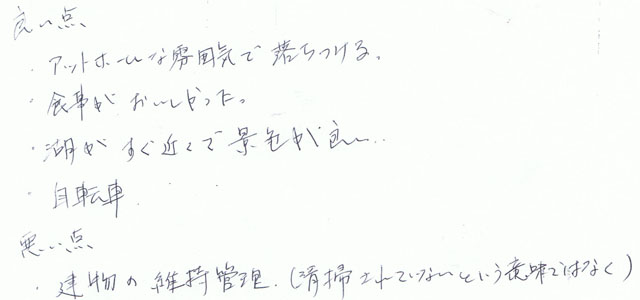 良い点
・アットホームな雰囲気で落ちつける。
・食事がおいしかった。
・湖がすぐ近くで景色が良い..
・自転車
悪い点
・建物の維持管理.(清掃されていないという意味ではなく)